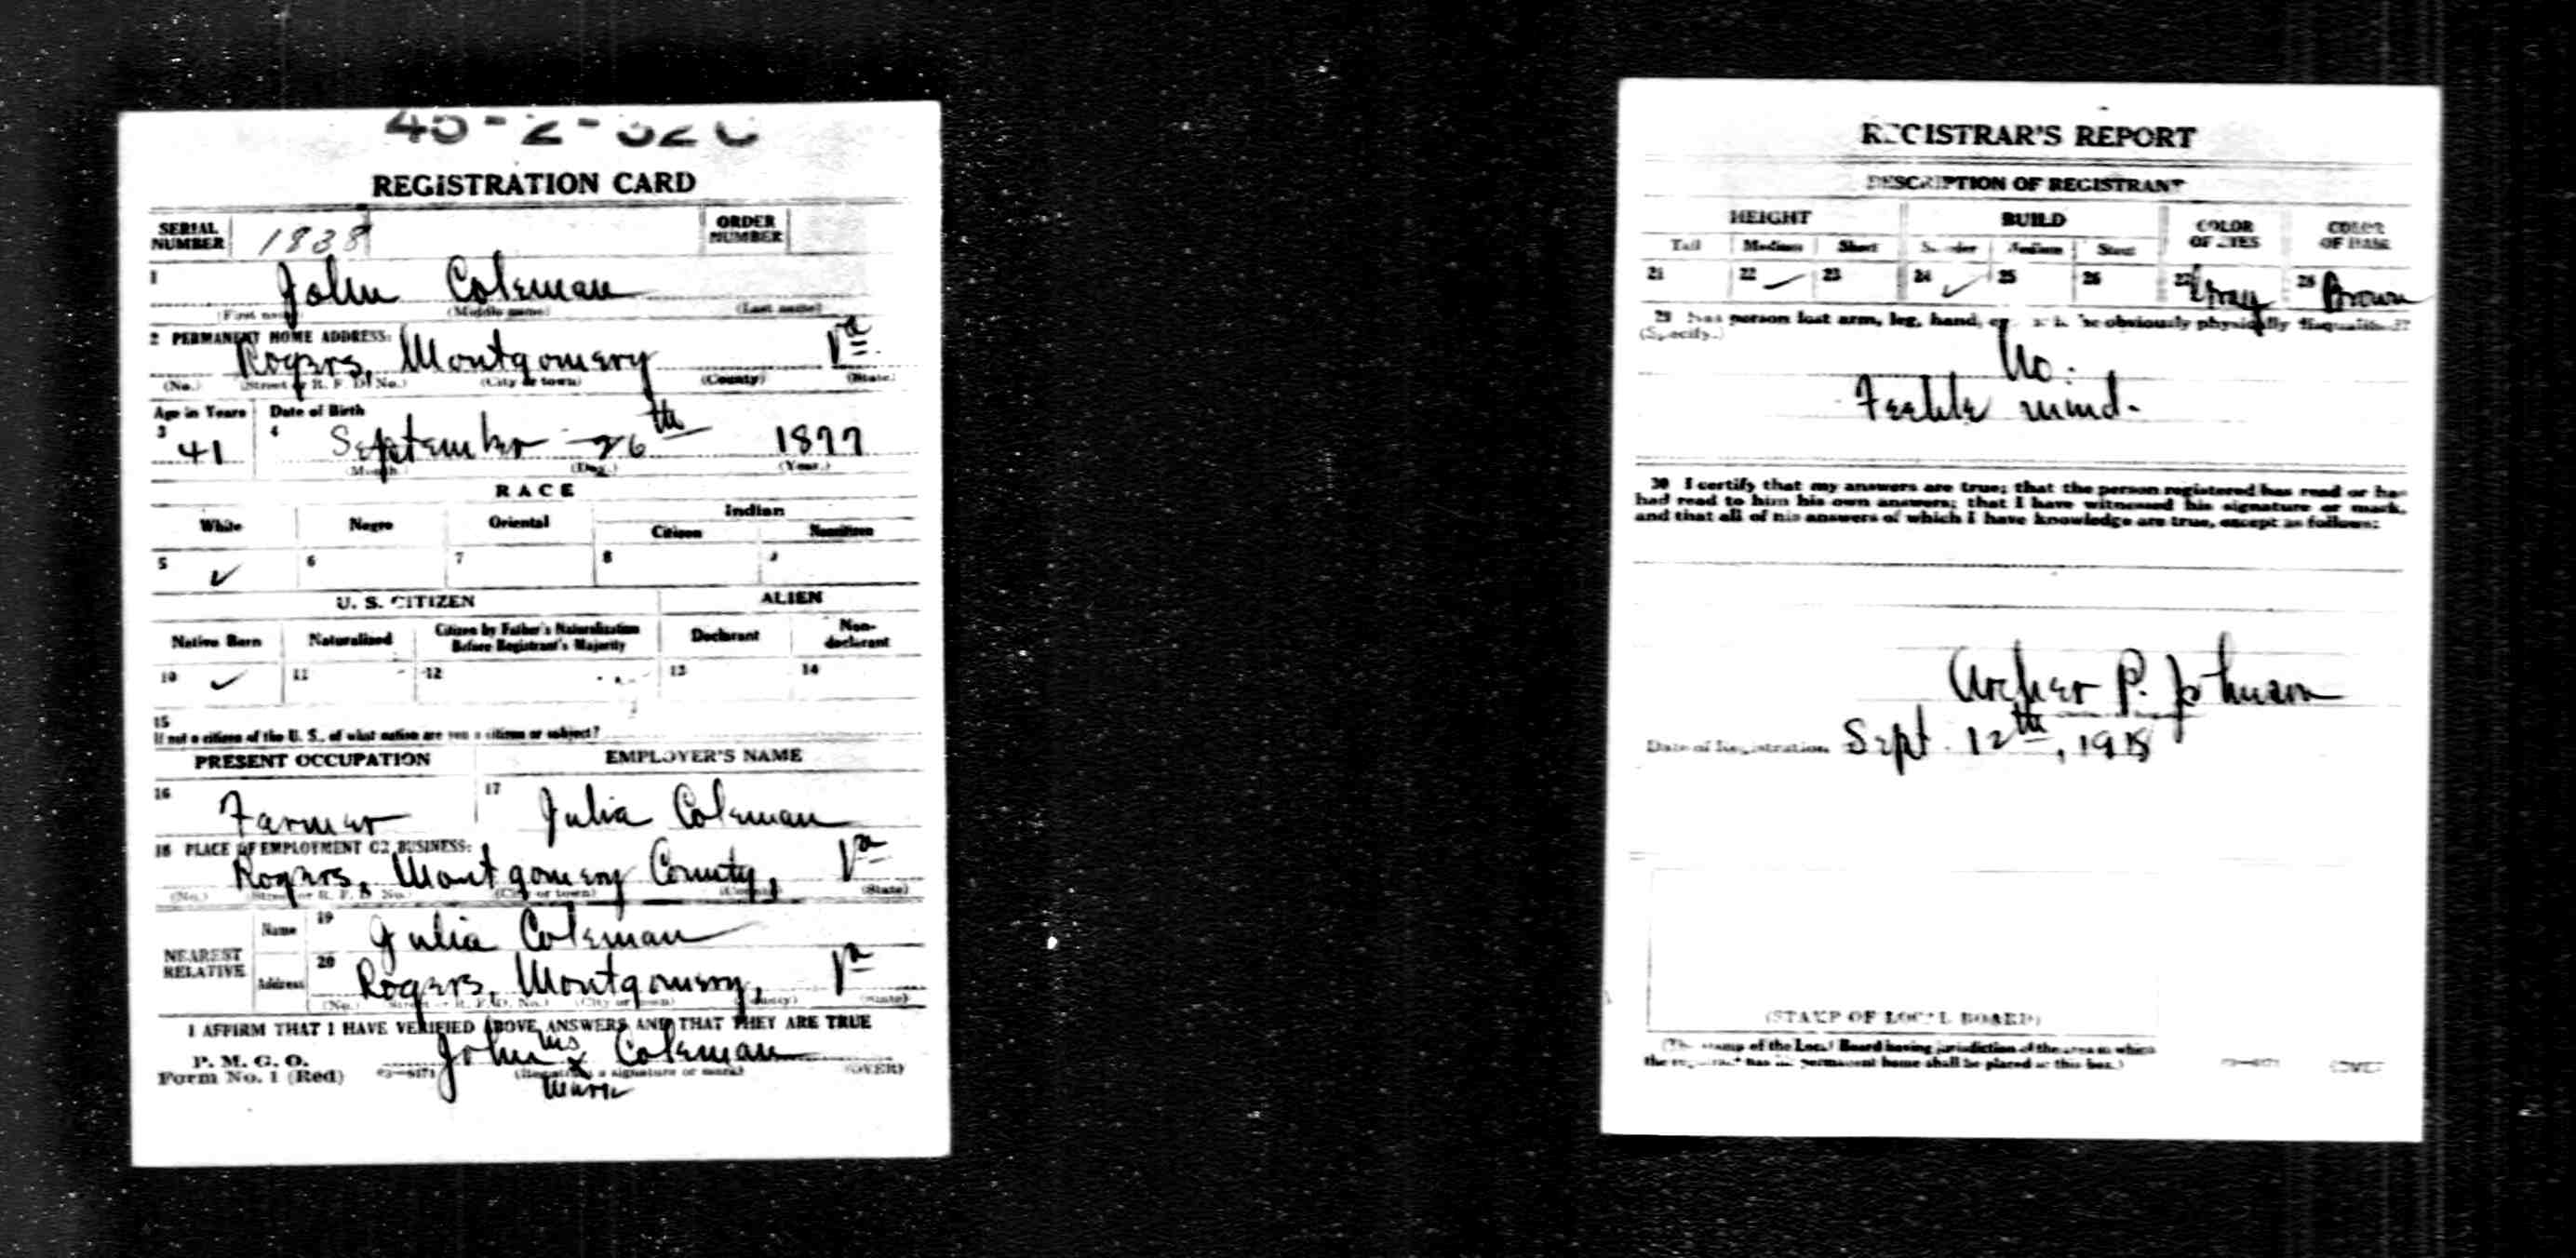 45-2-32 C
REGISTRATION CARD
SERIAL NUMBER 1838 ORDER NUMBER
1 John Coleman
(First name) (Middle name) (Last name)
2 PERMANENT HOME ADDRESS:
Rogers, Montgomery Va
(No.) (Street or R. F. D. No.) (City or town) (County) (State)
Age in Years Date of Birth
3 41 4 September 26th 1877
(Month.) (Day.) (Year.)
RACE
White Negro Oriental Indian
Citizen Noncitizen
5 ✓ 6 7 8 9
U. S. CITIZEN ALIEN
Native Born Naturalized Citizen by Father's Naturalization Before Registrant's Majority Declarant Non-declarant
10 ✓ 11 12 13 14
15
If not a citizen of the U. S., of what nation are you a citizen or subject?
PRESENT OCCUPATION EMPLOYER'S NAME
16 Farmer 17 Julia Coleman
18 PLACE OF EMPLOYMENT OR BUSINESS:
Rogers, Montgomery County, Va
(No.) (Street or R. F. D. No.) (City or town) (County) (State)
NEAREST RELATIVE
Name 19 Julia Coleman
Address 20 Rogers, Montgomery, Va
(No.) (Street or R. F. D. No.) (City or town) (County) (State)
I AFFIRM THAT I HAVE VERIFIED ABOVE ANSWERS AND THAT THEY ARE TRUE
P. M. G. O.
Form No. 1 (Red) 03—6171 John his x mark Coleman
(Registrant's signature or mark) (OVER)
REGISTRAR'S REPORT
DESCRIPTION OF REGISTRANT
HEIGHT BUILD COLOR OF EYES COLOR OF HAIR
Tall Medium Short Slender Medium Stout
21 22 ✓ 23 24 ✓ 25 26 27 Gray 28 Brown
29 Has person lost arm, leg, hand, or is he obviously physically disqualified?
(Specify.)
No.
Feeble mind.
30 I certify that my answers are true; that the person registered has read or has
had read to him his own answers; that I have witnessed his signature or mark,
and that all of his answers of which I have knowledge are true, except as follows:
Archer P. Johnson
Date of Registration Sept. 12th, 1918
(STAMP OF LOCAL BOARD)
(The stamp of the Local Board having jurisdiction of the area in which
the registrant has his permanent home shall be placed in this box.)
03—6171 (OVER)